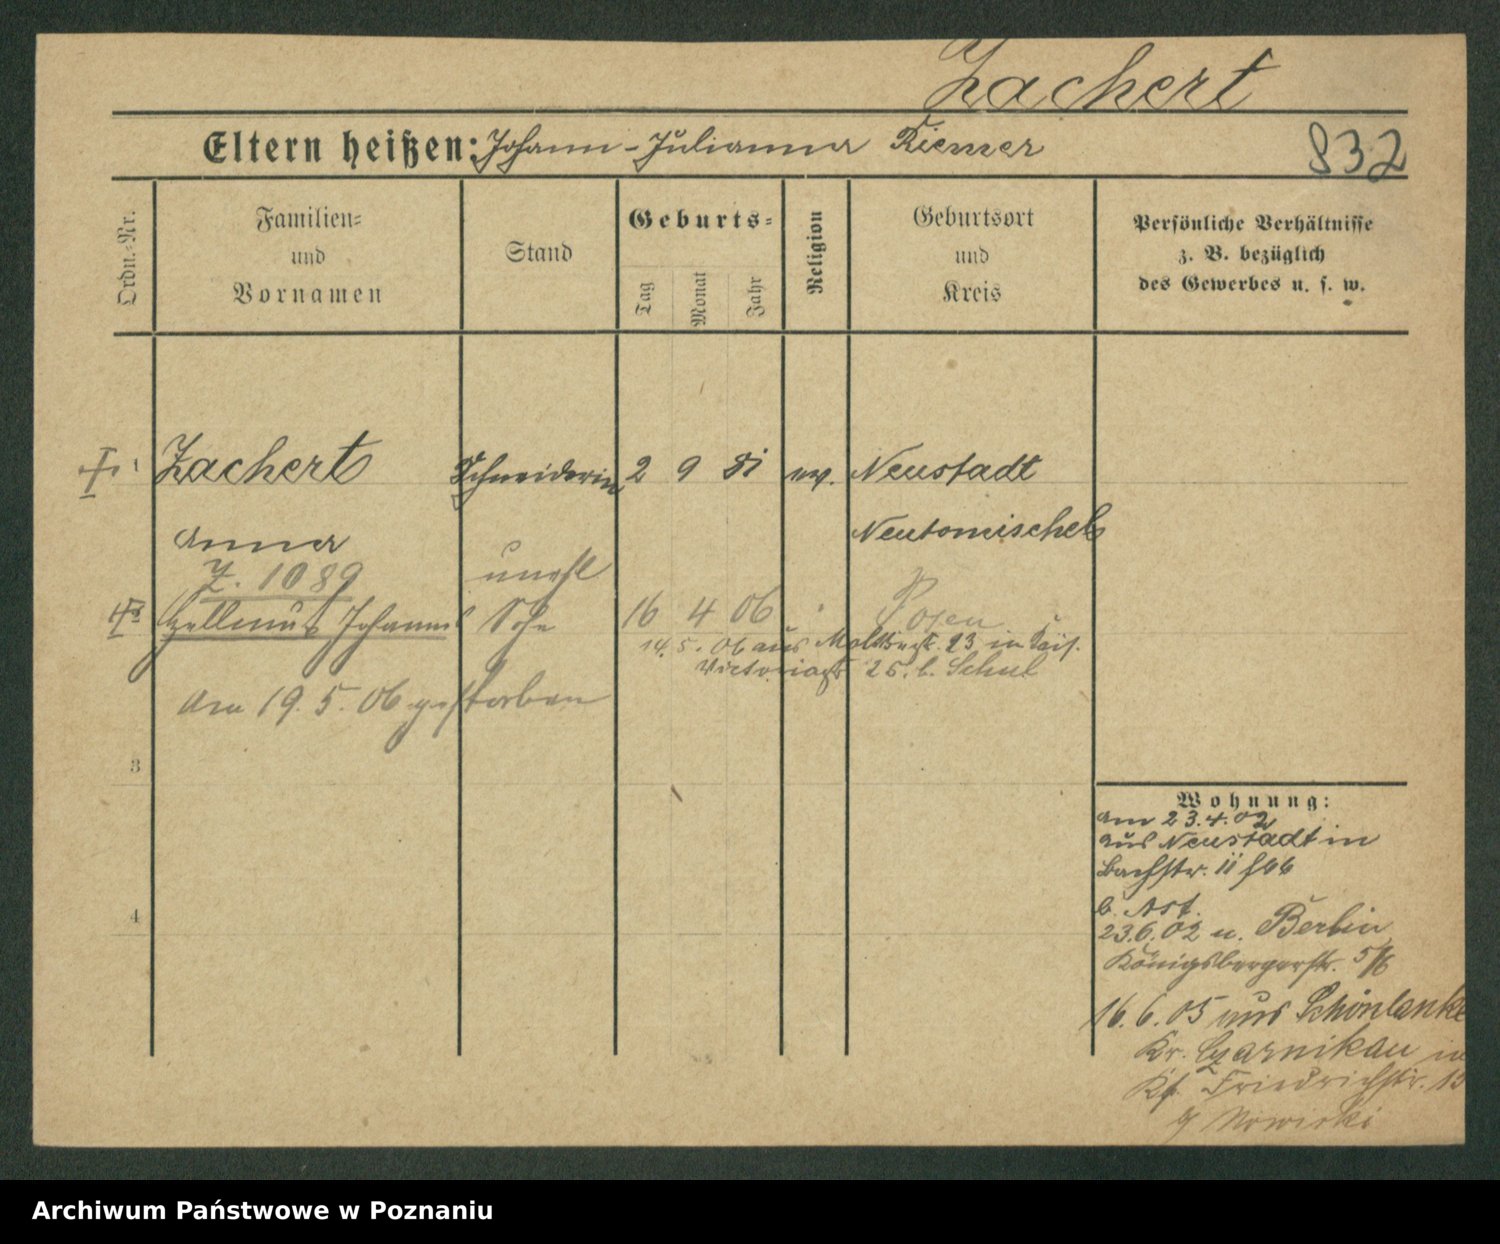 Zachert
Eltern heißen: Johann - Julianna Riemer
832
Ordn.-Nr.
Familien-
und
Vornamen
Stand
Geburts-
Tag
Monat
Jahr
Religion
Geburtsort
und
Kreis
Persönliche Verhältnisse
z. B. bezüglich
des Gewerbes u. s. w.
1 Zachert Schneiderin 2 9 81 ev. Neustadt
Anna Neutomischel
Z. 1089 unehl
Hellmut Johannes Sohn 16 4 06 Posen
14. 5. 06 aus 23 in
Victoriastr 25. b. Schul
Am 19. 5. 06 gestorben
3
4
Wohnung:
am 23.4.02
aus Neustadt in
Bachstr. 11
b. Ast.
23.6.02 n. Berlin
Königsbergerstr.
16. 6. 05 aus Schönlanke
Kr. Czarnikau in
Friedrichstr. 15
Nowicki
Archiwum Państwowe w Poznaniu